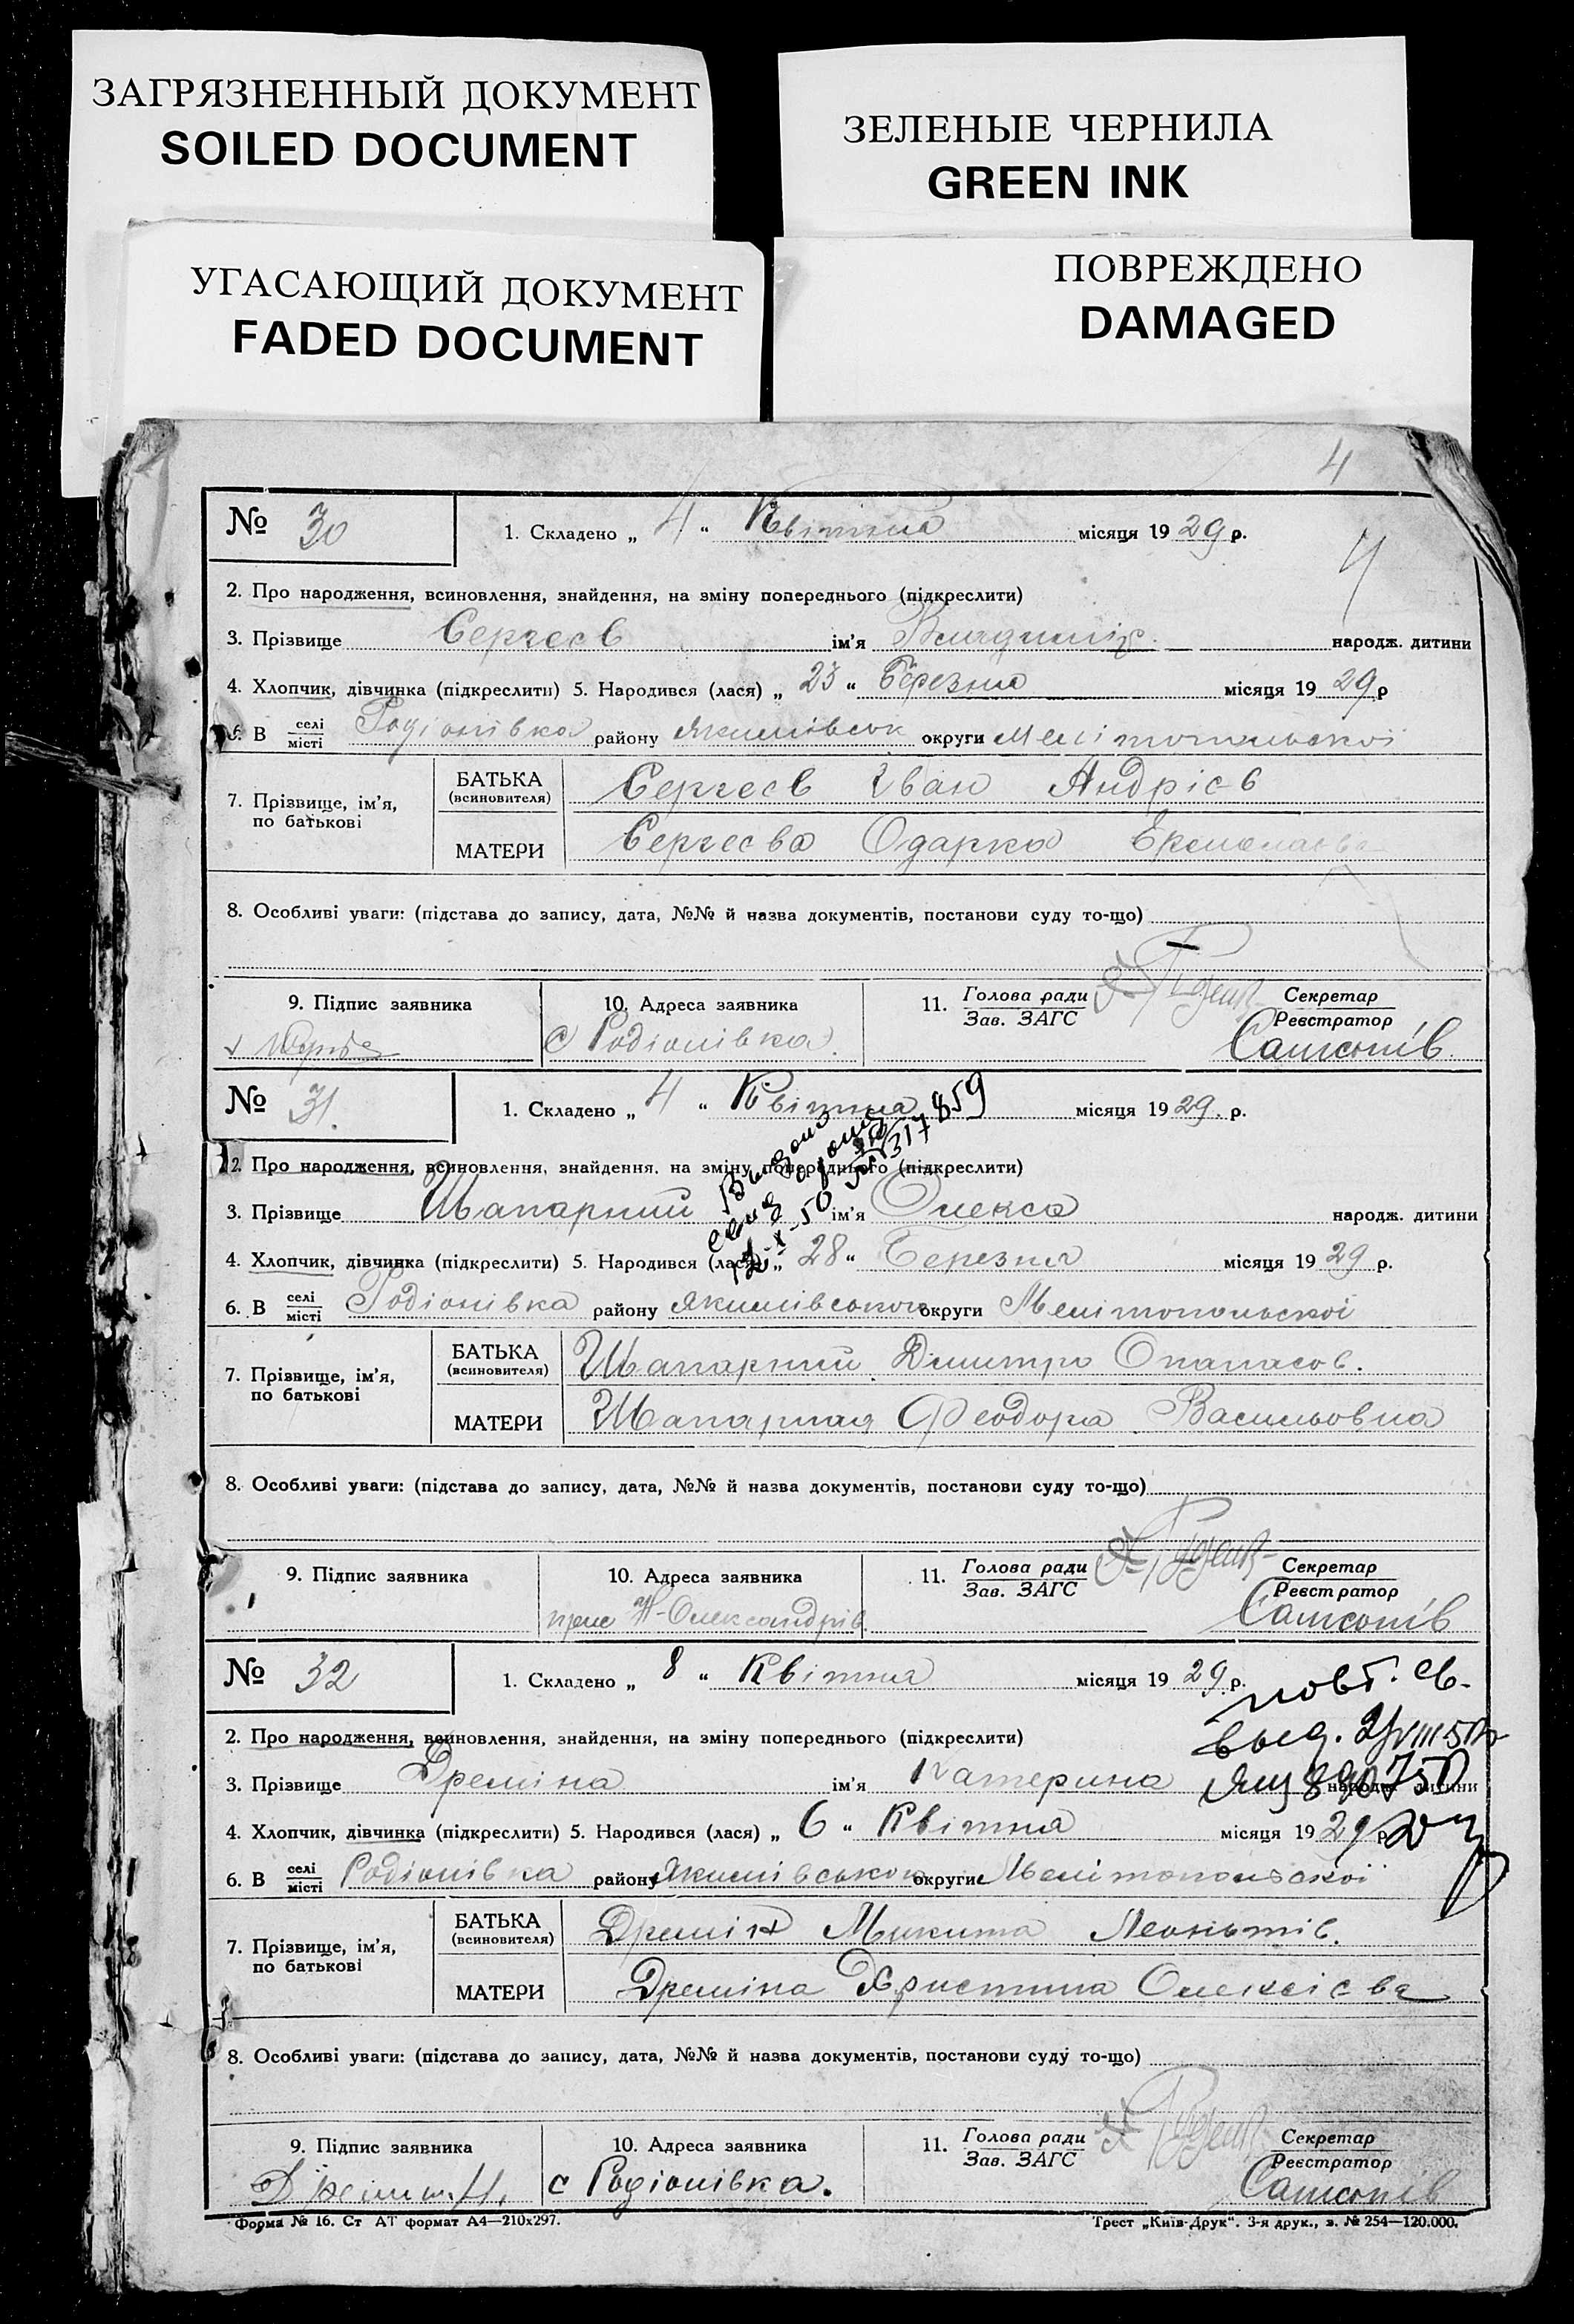 ЗАГРЯЗНЕННЫЙ ДОКУМЕНТ
SOILED DOCUMENT
ЗЕЛЕНЫЕ ЧЕРНИЛА
GREEN INK
УГАСАЮЩИЙ ДОКУМЕНТ
FADED DOCUMENT
ПОВРЕЖДЕНО
DAMAGED
4
№ 30 1. Складено „ 4 “ Квітня місяця 19 29 р.
2. Про народження, всиновлення, знайдення, на зміну попереднього (підкреслити)
3. Прізвище Сергеєв ім’я народж. дитини
4. Хлопчик, дівчинка (підкреслити) 5. Народився (лася) „ 23 “ Березня місяця 19 29 р
6. В селі місті Родіонівка району Якимівськ округи Мелітопольскоі
7. Прізвище, ім’я, по батькові
БАТЬКА (всиновителя) Сергеєв Іван Андрієв
МАТЕРИ Сергеєва Одарка
8. Особливі уваги: (підстава до запису, дата, №№ й назва документів, постанови суду то-що)
9. Підпис заявника 10. Адреса заявника 11. Голова ради Зав. ЗАГС Секретар Реєстратор
с Родіонівка. Самсонів
№ 31. 1. Складено „ 4 “ Квітня місяця 19 29. р.
317859
2. Про народження, всиновлення, знайдення, на зміну попереднього (підкреслити)
3. Прізвище Шапарний ім’я Олекса народж. дитини
4. Хлопчик, дівчинка (підкреслити) 5. Народився (лася) „ 28 “ Березня місяця 19 29 р.
6. В селі місті Родіонівка району Якимівського округи Мелітопольскоі
7. Прізвище, ім’я, по батькові
БАТЬКА (всиновителя) Шапарний Дмитро Опанасов.
МАТЕРИ Шапарная Феодора Васильовна
8. Особливі уваги: (підстава до запису, дата, №№ й назва документів, постанови суду то-що)
9. Підпис заявника 10. Адреса заявника 11. Голова ради Зав. ЗАГС Секретар Реєстратор
Олександрів. Самсонів
№ 32 1. Складено „ 8 “ Квітня місяця 19 29 р.
повт. св.
2. Про народження, всиновлення, знайдення, на зміну попереднього (підкреслити)
выд.
3. Прізвище Дреміна ім’я Катерина народж. дитини
4. Хлопчик, дівчинка (підкреслити) 5. Народився (лася) „ 6 “ Квітня місяця 19 29 р
6. В селі місті Родіонівка району Якимівського округи Мелітопольскоі
7. Прізвище, ім’я, по батькові
БАТЬКА (всиновителя) Дремін Микита Леонтів.
МАТЕРИ Дреміна Христина Олексієва
8. Особливі уваги: (підстава до запису, дата, №№ й назва документів, постанови суду то-що)
9. Підпис заявника 10. Адреса заявника 11. Голова ради Зав. ЗАГС Секретар Реєстратор
с Родіонівка. Самсонів
Форма № 16. Ст АТ формат А4—210х297. Трест „Київ-Друк“. 3-я друк., з. № 254—120.000.